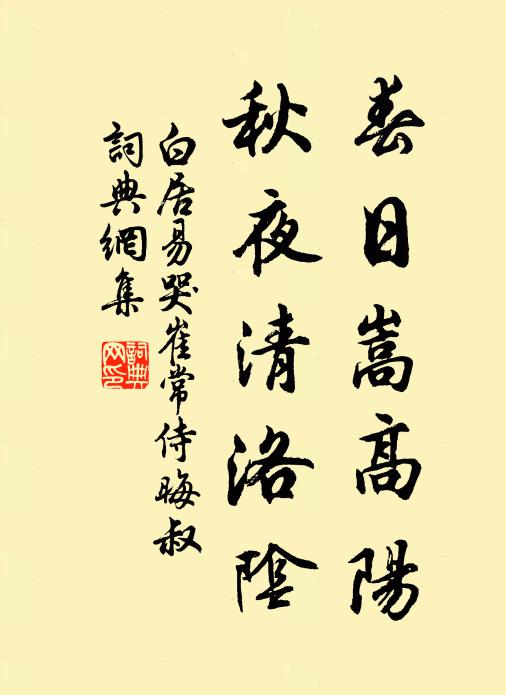 春日嵩高陽
秋夜清洛陰
白居易哭崔常侍晦叔
詞典網集
詞典
网印